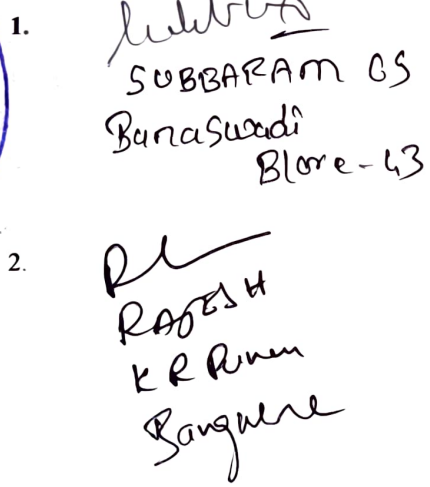 1.
SUBBARAM GS
Banaswadi
Blore - 43
2.
RAJESH
K R Puram
Bangalore